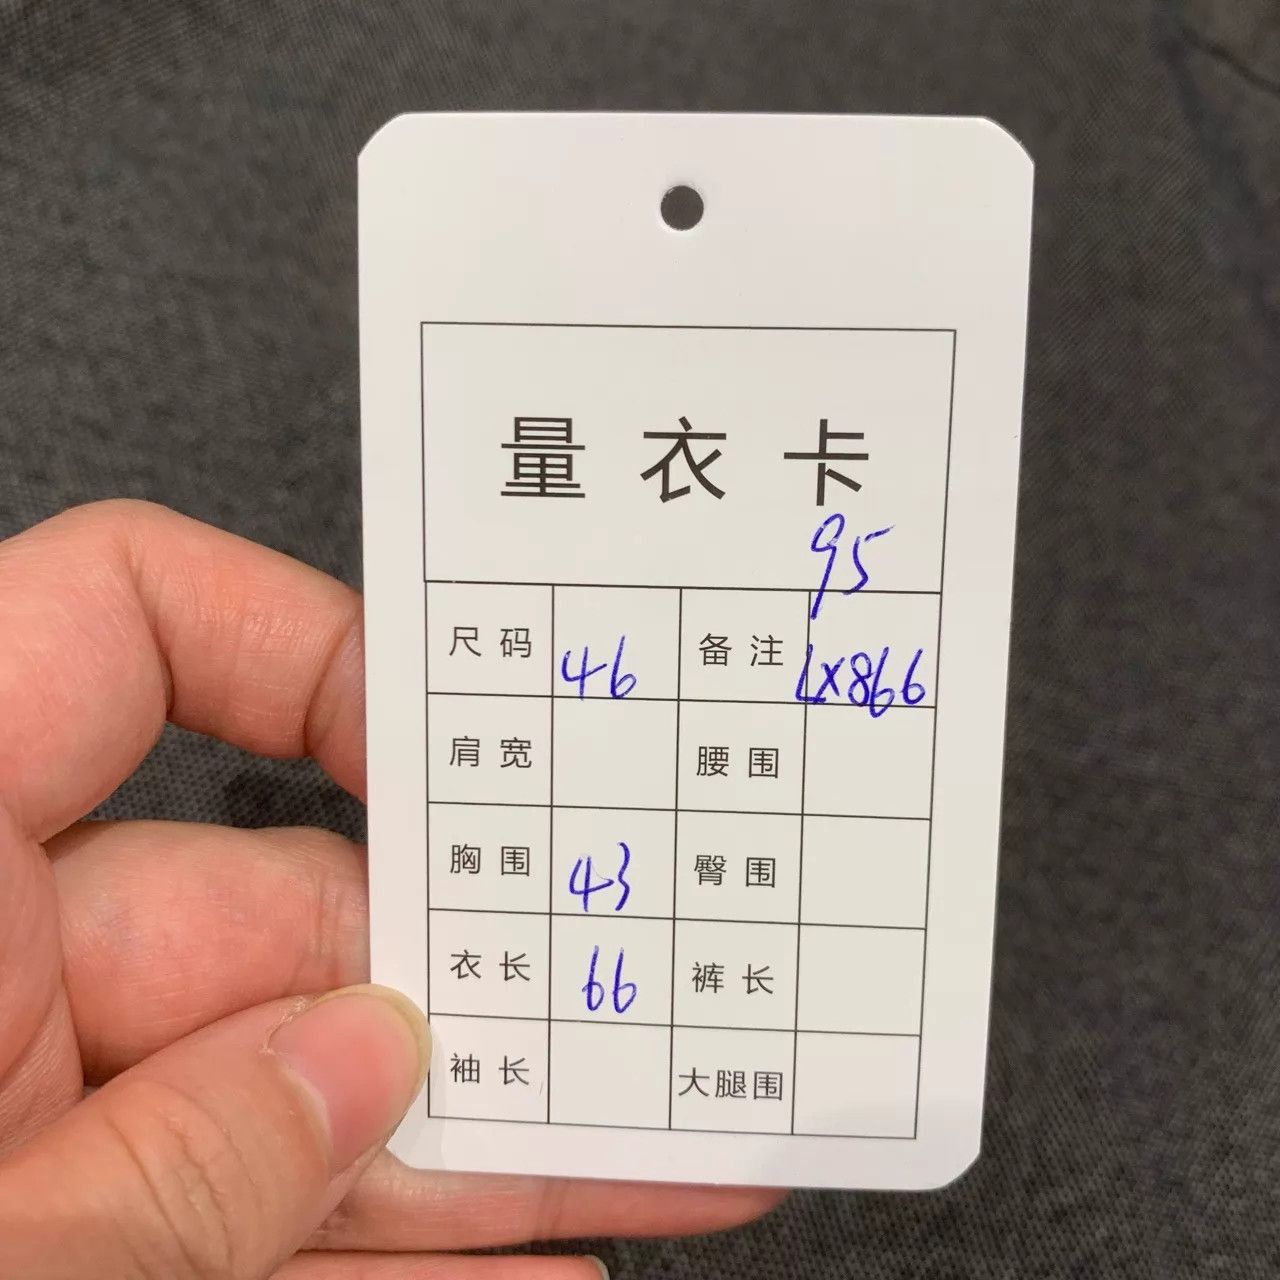 量衣卡
95
尺码 46 备注 LX866
肩宽 腰围
胸围 43 臀围
衣长 66 裤长
袖长 大腿围